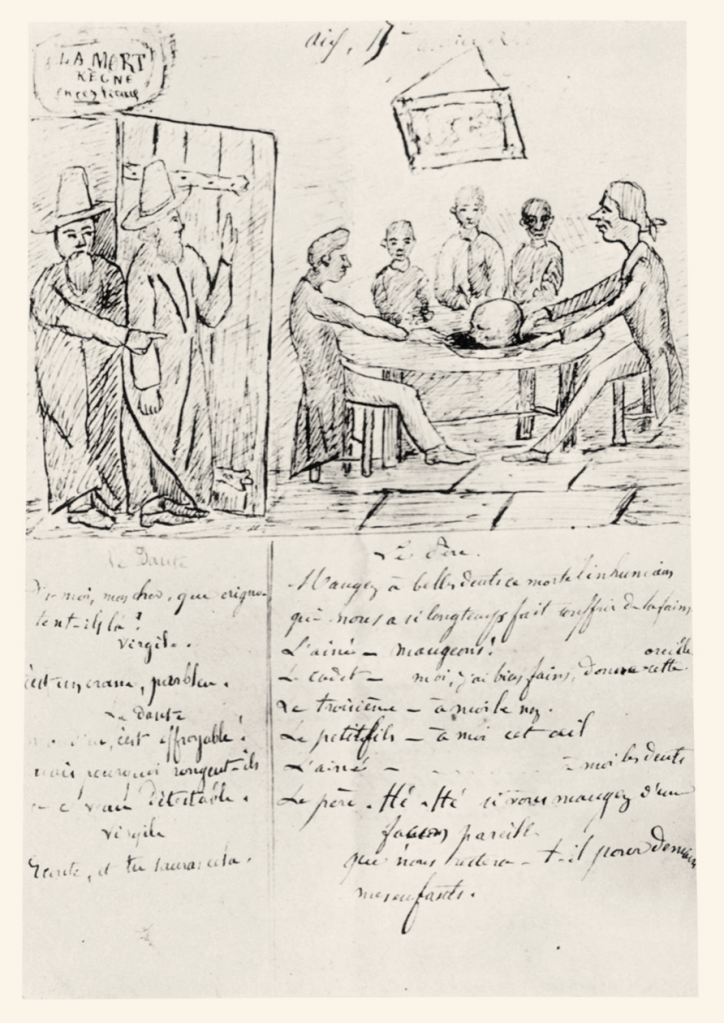 LA MORT
RÈGNE
en ces lieux
Aix, 17
Le Dante
Dis-moi, mon cher, que grigno-
tent-ils là?
Virgile.
C'est un crâne, parbleu.
Le Dante
mon Dieu, c'est effroyable!
mais pourquoi rongent-ils
ce cerveau détestable.
Virgile
Ecoute, et tu sauras cela.
Le Père.
Mangez à belles dents ce mortel inhumain
qui nous a si longtemps fait souffrir de la faim
L'ainé — mangeons!
Le cadet — moi, j'ai bien faim, donne cette oreille
Le troisième — à moi le nez.
Le petit fils — à moi cet œil
L'ainé — à moi les dents
Le père . Hé Hé si vous mangez d'une
façon pareille
que nous restera-t-il pour demain
mes enfants.